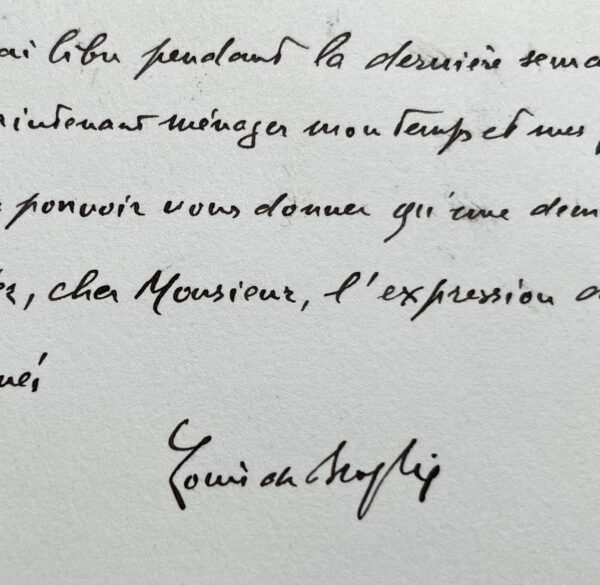 ai libre pendant la dernière sema
intenant ménager mon temps et mes
pouvoir vous donner qu'une dem
ez, cher Monsieur, l'expression d
ués
Louis de Broglie